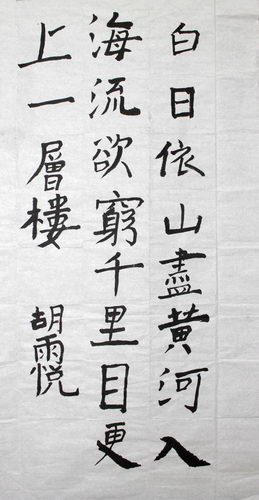 白日依山盡黃河入
海流欲窮千里目更
上一層樓
胡雨悦